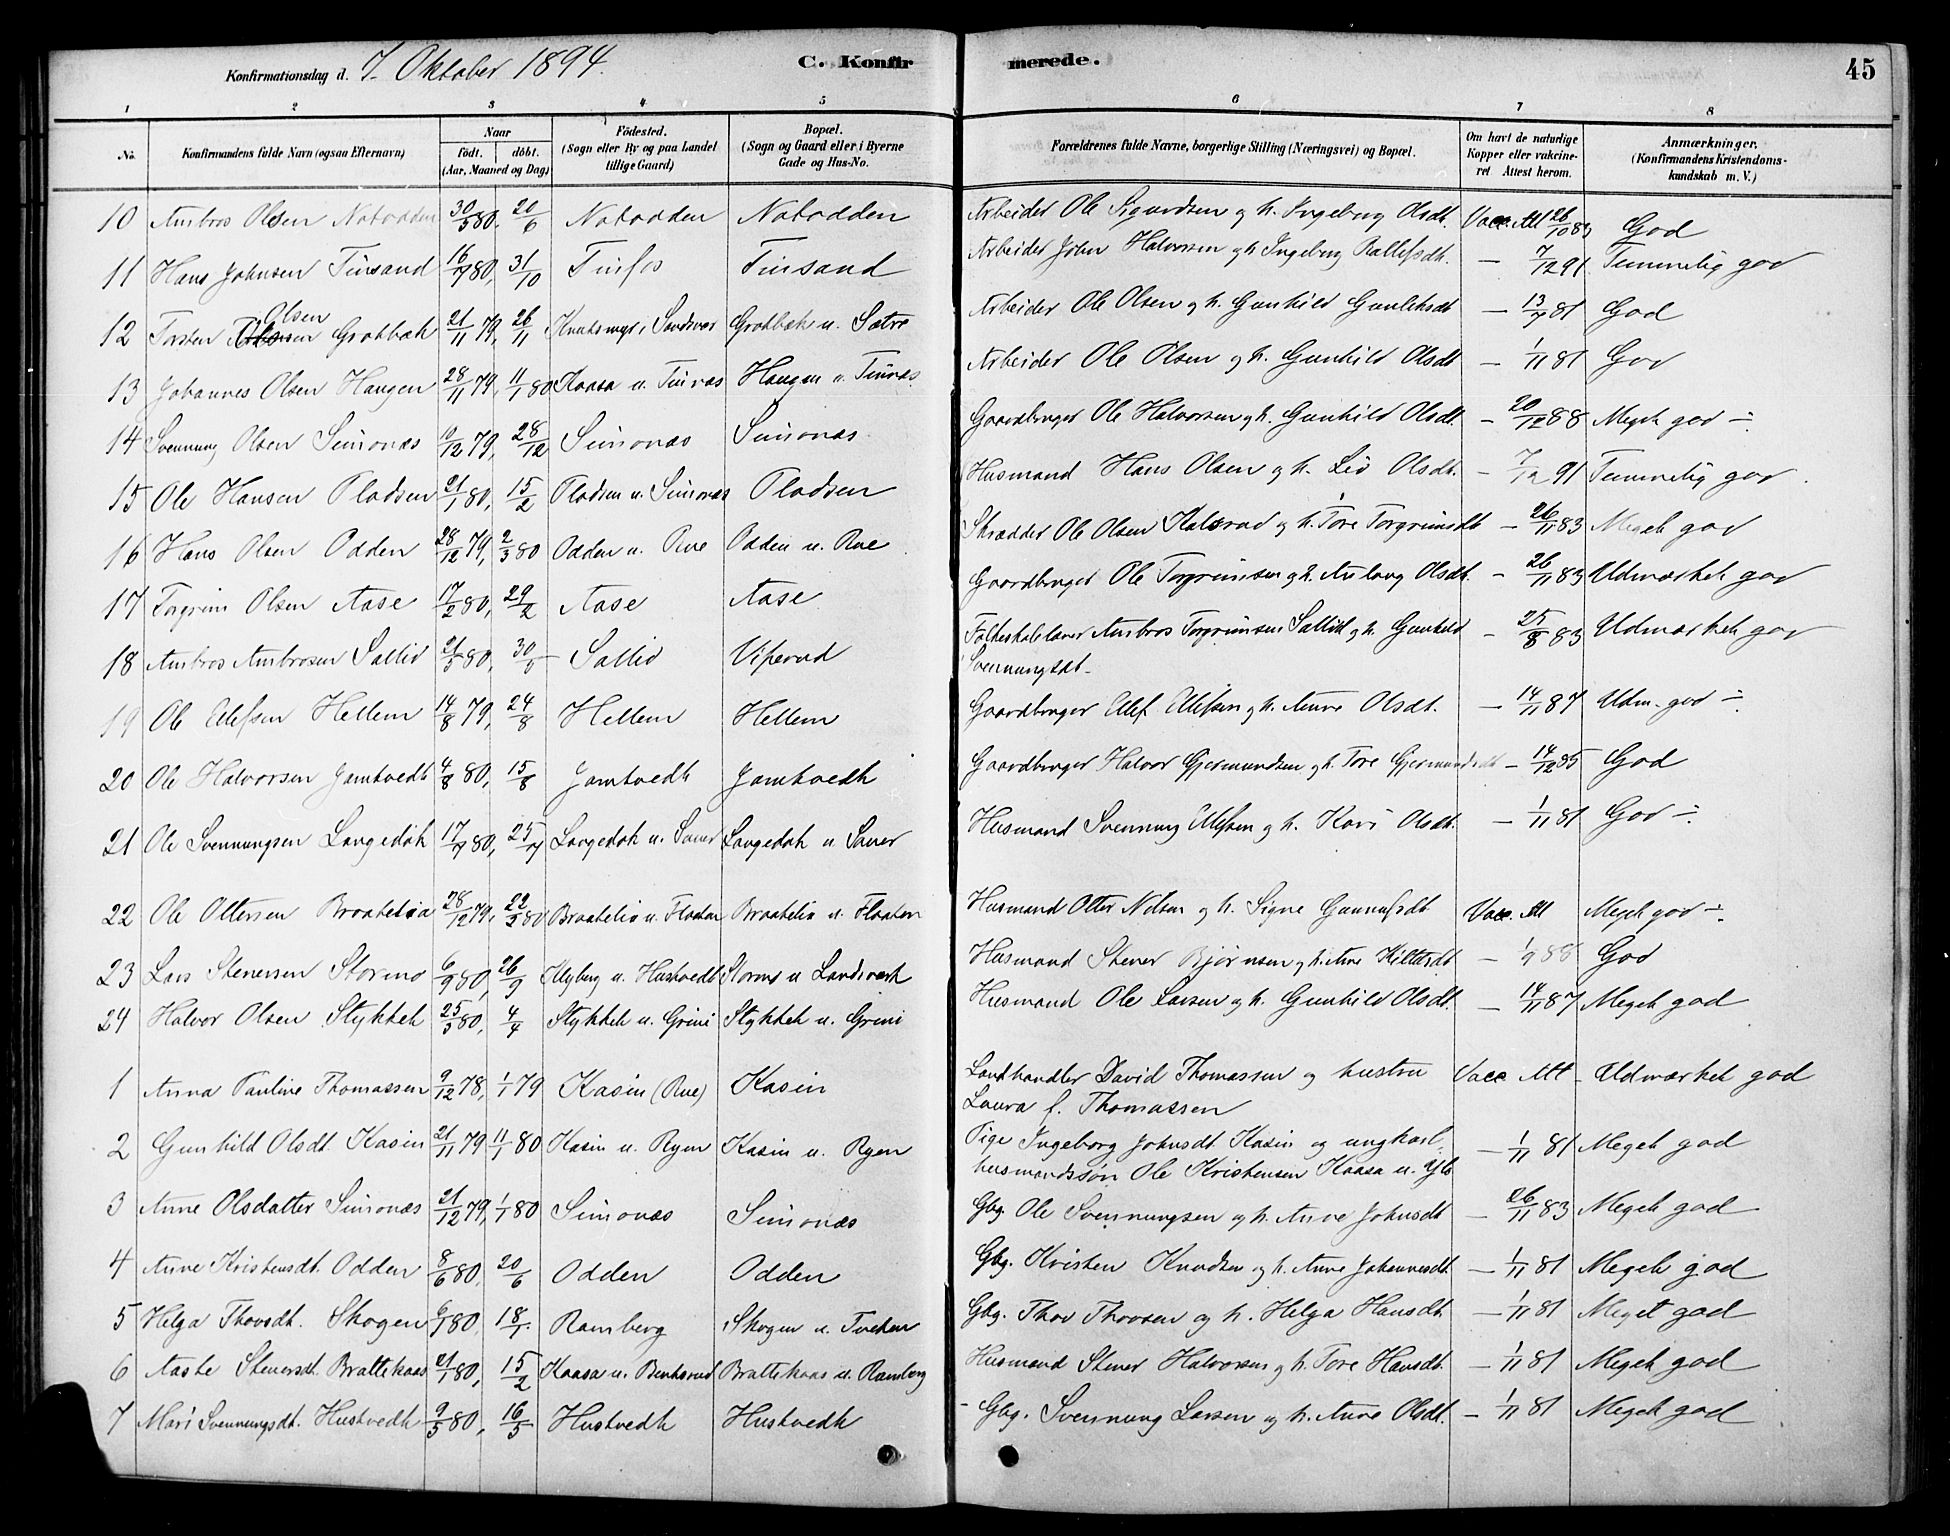 Konfirmationsdag d. 7. Oktober 1894.
C. Konfir
merede.
45
1 2 3 4 5 6 7 8
No. Konfirmandens fulde Navn (ogsaa Efternavn) Naar født. døbt. (Aar, Maaned og Dag) Födested. (Sogn eller By og paa Landet tillige Gaard) Bopæl. (Sogn og Gaard eller i Byerne Gade og Hus-No. Forældrenes fulde Navne, borgerlige Stilling (Næringsvei) og Bopæl. Om havt de naturlige Kopper eller vakcineret Attest herom. Anmærkninger. (Konfirmandens Kristendomskundskab m. V.)
10 Ambros Olsen Notodden 30/5 80. 20/6 Notodden Notodden Arbeider Ole Sigurdsen og h. Ingeborg Olsdt. Vacc. Att 26/10 83 God
11 Hans Johnsen Tinsand 16/9 80, 31/10 Tinfos Tinsand Arbeider John Halvorsen og h. Ingeborg Rollefsdt. — 7/12 91 Temmelig god
12 Torsten Olsen Grotbæk 21/11 79, 26/11 Knutsmyr i Sandsvær Grotbæk u. Sætre Arbeider Ole Olsen og h. Gunhild Gunleksdt — 13/9 81 God
13 Johannes Olsen Haugen 28/11 79, 11/1 80 Kaasa u. Tinnæs Haugen u. Tinnæs Arbeider Ole Olsen og h. Gunhild Olsdt — 1/11 81 God
14 Svennung Olsen Simonæs 10/12 79, 28/12 Simonæs Simonæs Gaardbruger Ole Halvorsen og h. Gunhild Olsdt. — 20/12 88 Meget god ÷
15 Ole Hansen Pladsen 21/1 80, 15/2 Pladsen u. Simonæs Pladsen Husmand Hans Olsen og h. Liv Olsdt. — 7/12 91 Temmelig god.
16 Hans Olsen Odden 28/12 79, 2/3 80 Odden u. Rue Odden u. Rue Skrædder Ole Olsen Kalsrud og h. Tore Torgrimsdt — 26/11 83 Meget god
17 Torgrim Olsen Aase 17/2 80, 29/2 Aase Aase Gaardbruger Ole Torgrimsen og h. Anlaug Olsdt. — 26/11 83 Udmærket god
18 Ambros Ambrosen Sallid 21/5 80, 30/5 Sallid Viperud Folkeskolelærer Ambros Torgrimsen Sallid og h. Gunhild Svennungsdt. — 25/8 83 Udmærket god
19 Ole Ellefsen Hellem 14/8 79, 24/8 Hellem Hellem Gaardbruger Ellef Ellefsen og h. Anne Olsdt. — 14/11 87 Udm. god ÷
20 Ole Halvorsen Jamtvedt 4/8 80, 15/8 Jamtvedt Jamtvedt Gaardbruger Halvor Gjermundsen og h. Tore Gjermundsdt — 14/12 85 God
21 Ole Svennungsen Langedok 17/7 80, 25/7 Langedok u. Sauer Langedok u. Sauer Husmand Svennung Ellefsen og h. Kari Olsdt. — 1/11 81 God ÷
22 Ole Ottersen Braatelia 28/12 79, 22/2 80 Braatelia u. Flaaten Braatelia u. Flaaten Husmand Otter Nilsen og h. Signe Gunnufsdt Vacc. Att Meget god ÷
23 Lars Stenersen Stormo 6/9 80, 26/9 Klyberg u. Hustvedt Stormo u. Landsverk Husmand Stener Bjørnsen og h. Anne Kittilsdt — 1/9 88 God
24 Halvor Olsen Stykket 25/3 80, 4/4 Stykket u. Grini Stykket u. Grini Husmand Ole Larsen og h. Gunhild Olsdt. — 14/11 87 Meget god
1 Anna Pauline Thomassen 9/12 78, 1/1 79 Kasin (Rue) Kasin Landhandler David Thomassen og hustru Laura f. Thomassen Vacc Att — Udmærket god
2 Gunhild Olsdt. Kasin 21/11 79 11/1 80 Kasin u. Ryen Kasin u. Ryen Pige Ingeborg Johnsdt. Kasin og ungkarl husmandssøn Ole Kristensen Kaasa u. — 1/11 81 Meget god
3 Anne Olsdatter Simonæs 21/12 79, 1/1 80 Simonæs Simonæs Gbg. Ole Svennungsen og h. Anne Johnsdt — 26/11 83 Meget god
4 Anne Kristensdt. Odden 8/6 80, 20/6 Odden Odden Gbg. Kristen Knudsen og h. Anne Johannesdt. — 1/11 81 Meget god
5 Helga Thovsdt. Skogen 6/1 80, 18/1. Ramberg Skogen u. Tveiten Gbg. Thov Thovsen og h. Helga Hansdt. — 1/11 81 Meget god
6 Aaste Stenersdt. Brattekaas 21/1 80, 15/2 Kaasa u. Bentsrud Brattekaas u. Ramberg Husmand Stener Halvorsen og h. Tore Hansdt. — 1/11 81 Meget god
7 Mari Svennungsdt. Hustvedt 9/5 80, 16/5 Hustvedt Hustvedt Gbg. Svennung Larsen og h. Anne Olsdt. — 1/11 81 Meget god